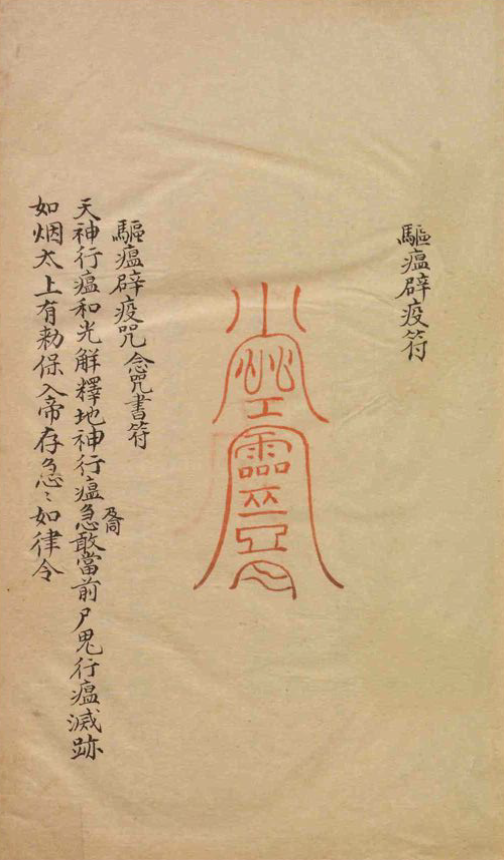 驅瘟辟疫符
靈
驅瘟辟疫咒 念咒書符
天神行瘟和光解釋地神行瘟急敢當前尸鬼行瘟滅跡
及高
如烟太上有勑保入帝存急〻如律令